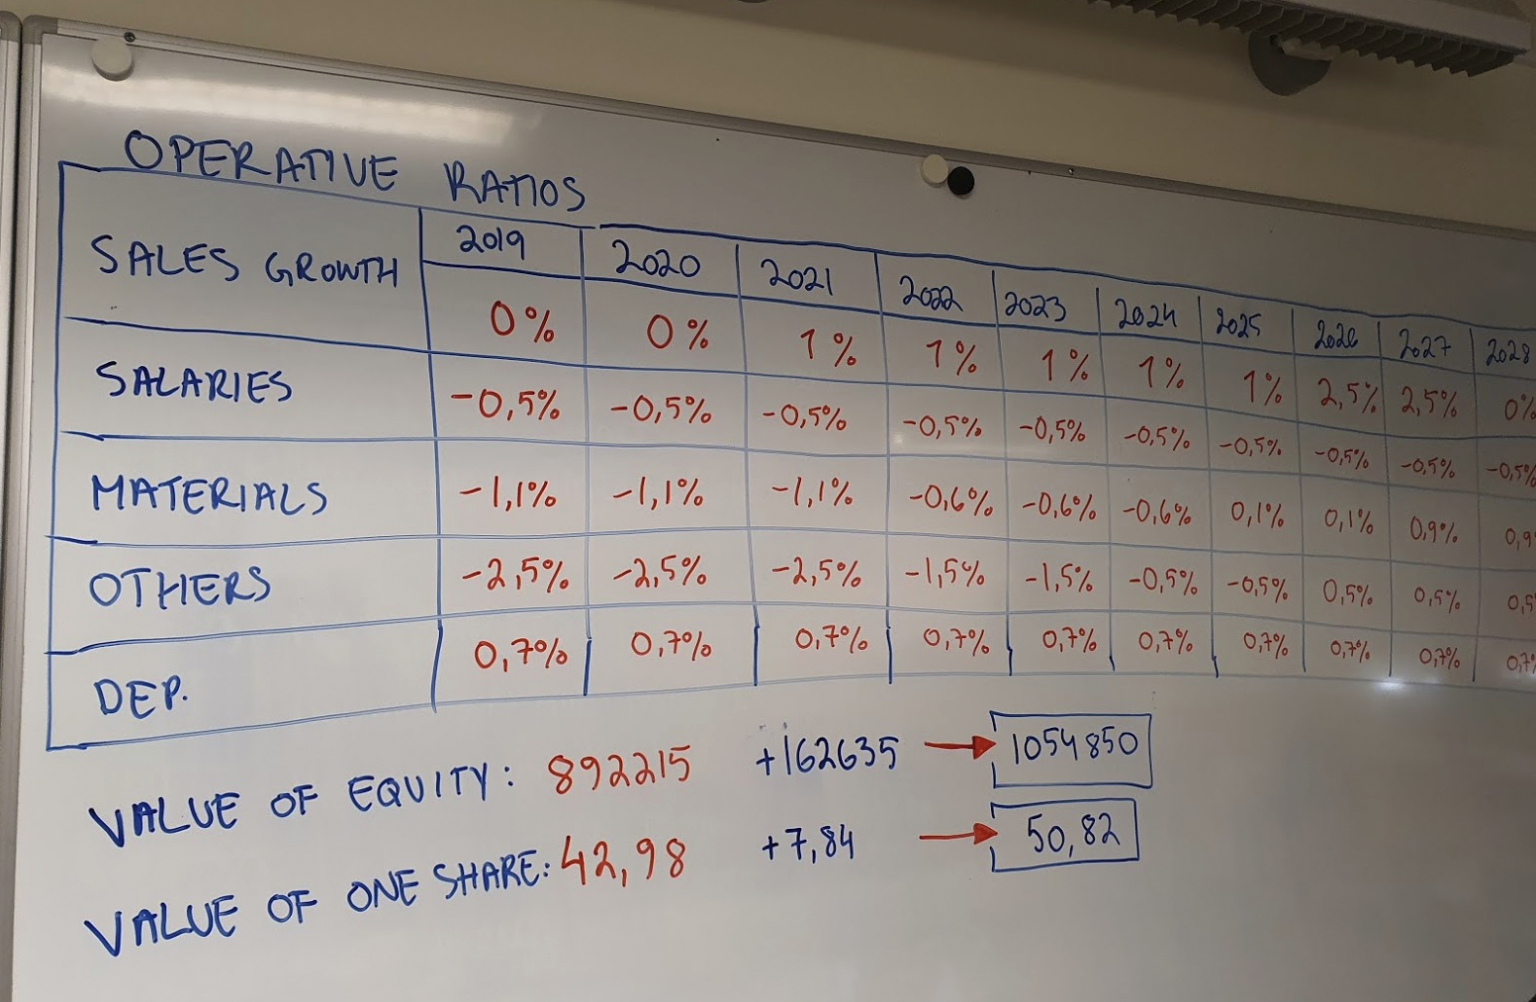 OPERATIVE RATIOS
SALES GROWTH 2019 2020 2021 2022 2023 2024 2025 2026 2027 2028
0% 0% 1% 1% 1% 1% 1% 2,5% 2,5% 0%
SALARIES -0,5% -0,5% -0,5% -0,5% -0,5% -0,5% -0,5% -0,5% -0,5% -0,5%
MATERIALS -1,1% -1,1% -1,1% -0,6% -0,6% -0,6% 0,1% 0,1% 0,9% 0,9
OTHERS -2,5% -2,5% -2,5% -1,5% -1,5% -0,5% -0,5% 0,5% 0,5% 0,5
DEP. 0,7% 0,7% 0,7% 0,7% 0,7% 0,7% 0,7% 0,7% 0,7% 0,7%
VALUE OF EQUITY: 892215 +162635 → 1054850
VALUE OF ONE SHARE: 42,98 +7,84 → 50,82